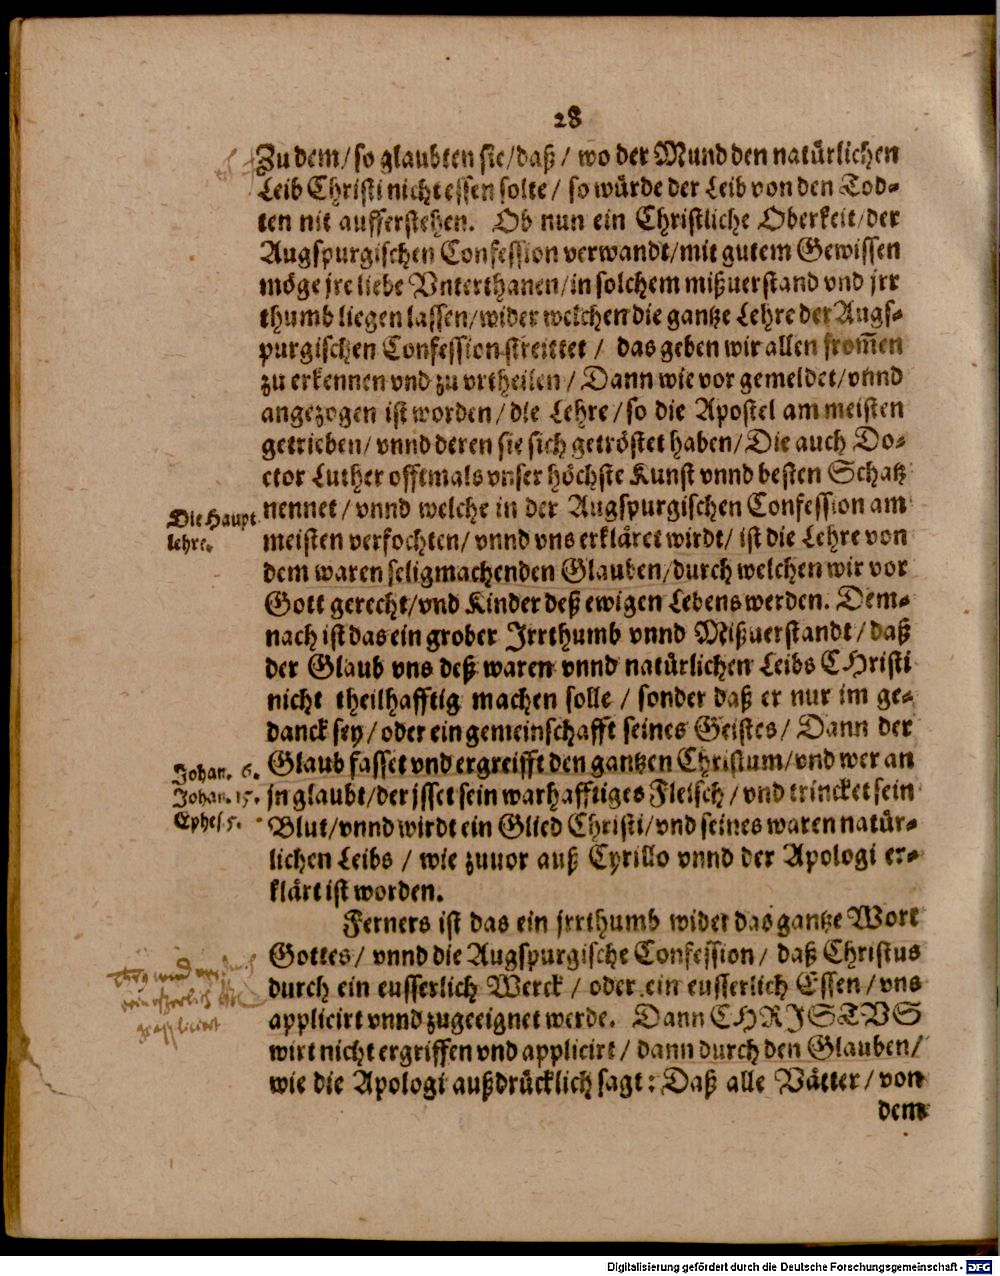 28
Zu dem/ so glaubten sie/ daß/ wo der Mund den natürlichen
Leib Christi nicht essen solte/ so würde der Leib von den Tod-
ten nit aufferstehen. Ob nun ein Christliche Oberkeit/ der
Augspurgischen Confession verwandt/ mit gutem Gewissen
möge jre liebe Vnterthanen/ in solchem mißuerstand vnd jrr
thumb liegen lassen/ wider welchen die gantze Lehre der Augs-
purgischen Confession streittet/ das geben wir allen from̃en
zu erkennen vnd zu vrtheilen/ Dann wie vor gemeldet/ vnnd
angezogen ist worden/ die Lehre/ so die Apostel am meisten
getrieben/ vnnd deren sie sich getröstet haben/ Die auch Do-
ctor Luther offtmals vnser höchste Kunst vnnd besten Schatz
Die Haupt
lehre.
nennet/ vnnd welche in der Augspurgischen Confession am
meisten verfochten/ vnnd vns erkläret wirdt/ ist die Lehre von
dem waren seligmachenden Glauben/ durch welchen wir vor
Gott gerecht/ vnd Kinder deß ewigen Lebens werden. Dem-
nach ist das ein grober Irrthumb vnnd Mißuerstandt/ daß
der Glaub vns deß waren vnnd natürlichen Leibs CHristi
nicht theilhafftig machen solle/ sonder daß er nur im ge-
danck sey/ oder ein gemeinschafft seines Geistes/ Dann der
Johan. 6.
Johan. 15.
Ephes 5.
Glaub fasset vnd ergreifft den gantzen Christum/ vnd wer an
jn glaubt/ der jsset sein warhafftiges Fleisch/ vnd trincket sein
Blut/ vnnd wirdt ein Glied Christi/ vnd seines waren natür-
lichen Leibs/ wie zuuor auß Cyrillo vnnd der Apologi er-
klärt ist worden.
Ferners ist das ein jrrthumb wider das gantze Wort
Gottes/ vnnd die Augspurgische Confession/ daß Christus
durch ein eusserlich Werck/ oder ein eusserlich Essen/ vns
applicirt vnnd zugeeignet werde. Dann CHRISTVS
wirt nicht ergriffen vnd applicirt/ dann durch den Glauben/
wie die Apologi außdrücklich sagt: Daß alle Vätter/ von
dem
Digitalisierung gefördert durch die Deutsche Forschungsgemeinschaft - DFG